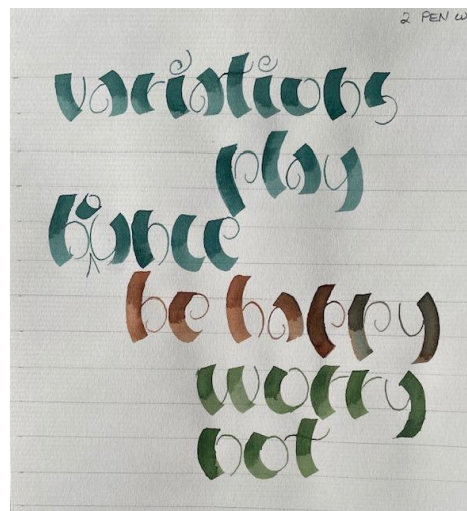 2 PEN
variations
play
bounce
be happy
worry
not